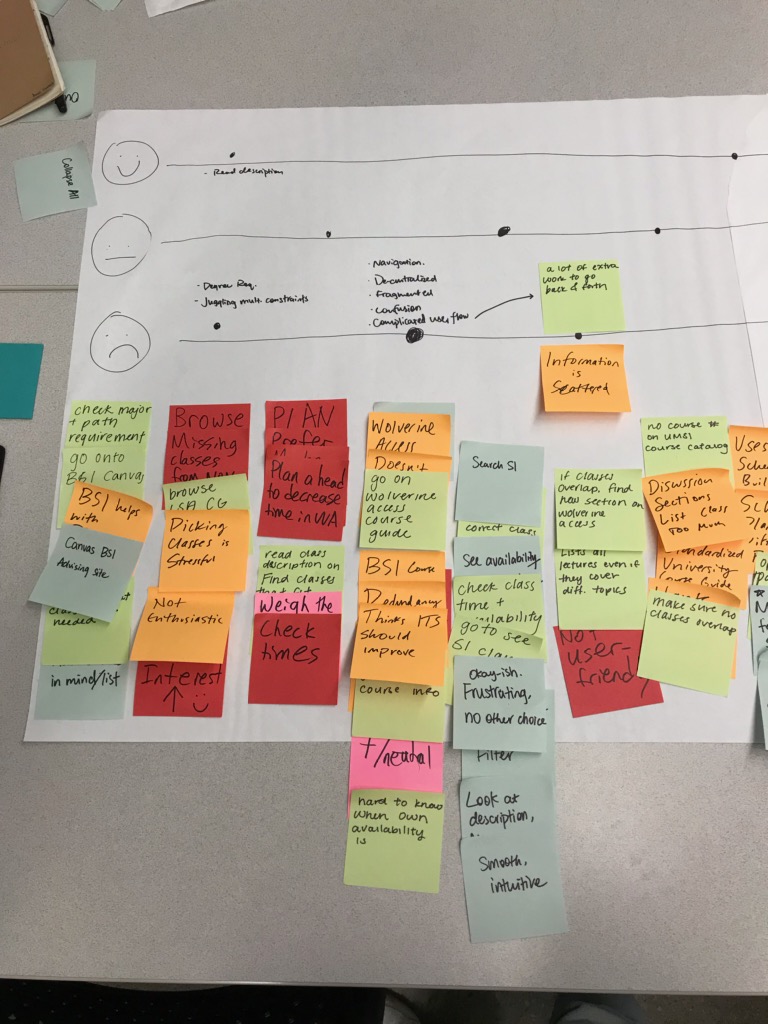 Collapse All
Read description
Degree Req.
Juggling mult. constraints
Navigation.
Decentralized
Fragmented
confusion
Complicated user flow
a lot of extra
work to go
back & forth
Information
is
Scattered
check major
+ path
requirement
go onto
BSI Canvas
BSI helps
with
Canvas BSI
Advising site
needed
in mind/list
Browse
Missing
classes
from
browse
LSA CG
Picking
classes is
Stressful
Not
Enthusiastic
Interest
↑
PLAN
Prefer
Plan a head
to decrease
time in WA
read class
description on
Find classes
Weigh the
Check
times
Wolverine
Access
Doesn't
go on
wolverine
access
course
guide
BSI Course
Redundancy
Thinks ITS
should
improve
course info
+/neutral
hard to know
when own
availability
is
Search SI
correct class
See availability
Check class
time +
availability
go to see
SI class
Okay-ish.
Frustrating,
no other choice
Filter
Look at
description,
Smooth,
intuitive
if classes
overlap, find
new section on
wolverine
access
Lists all
lectures even if
they cover
diff. topics
Not
user-
friendly
no course #
on UMSI
course catalog
Discussion
Sections
List class
too much
University
Course Guide
make sure no
classes overlap
Uses